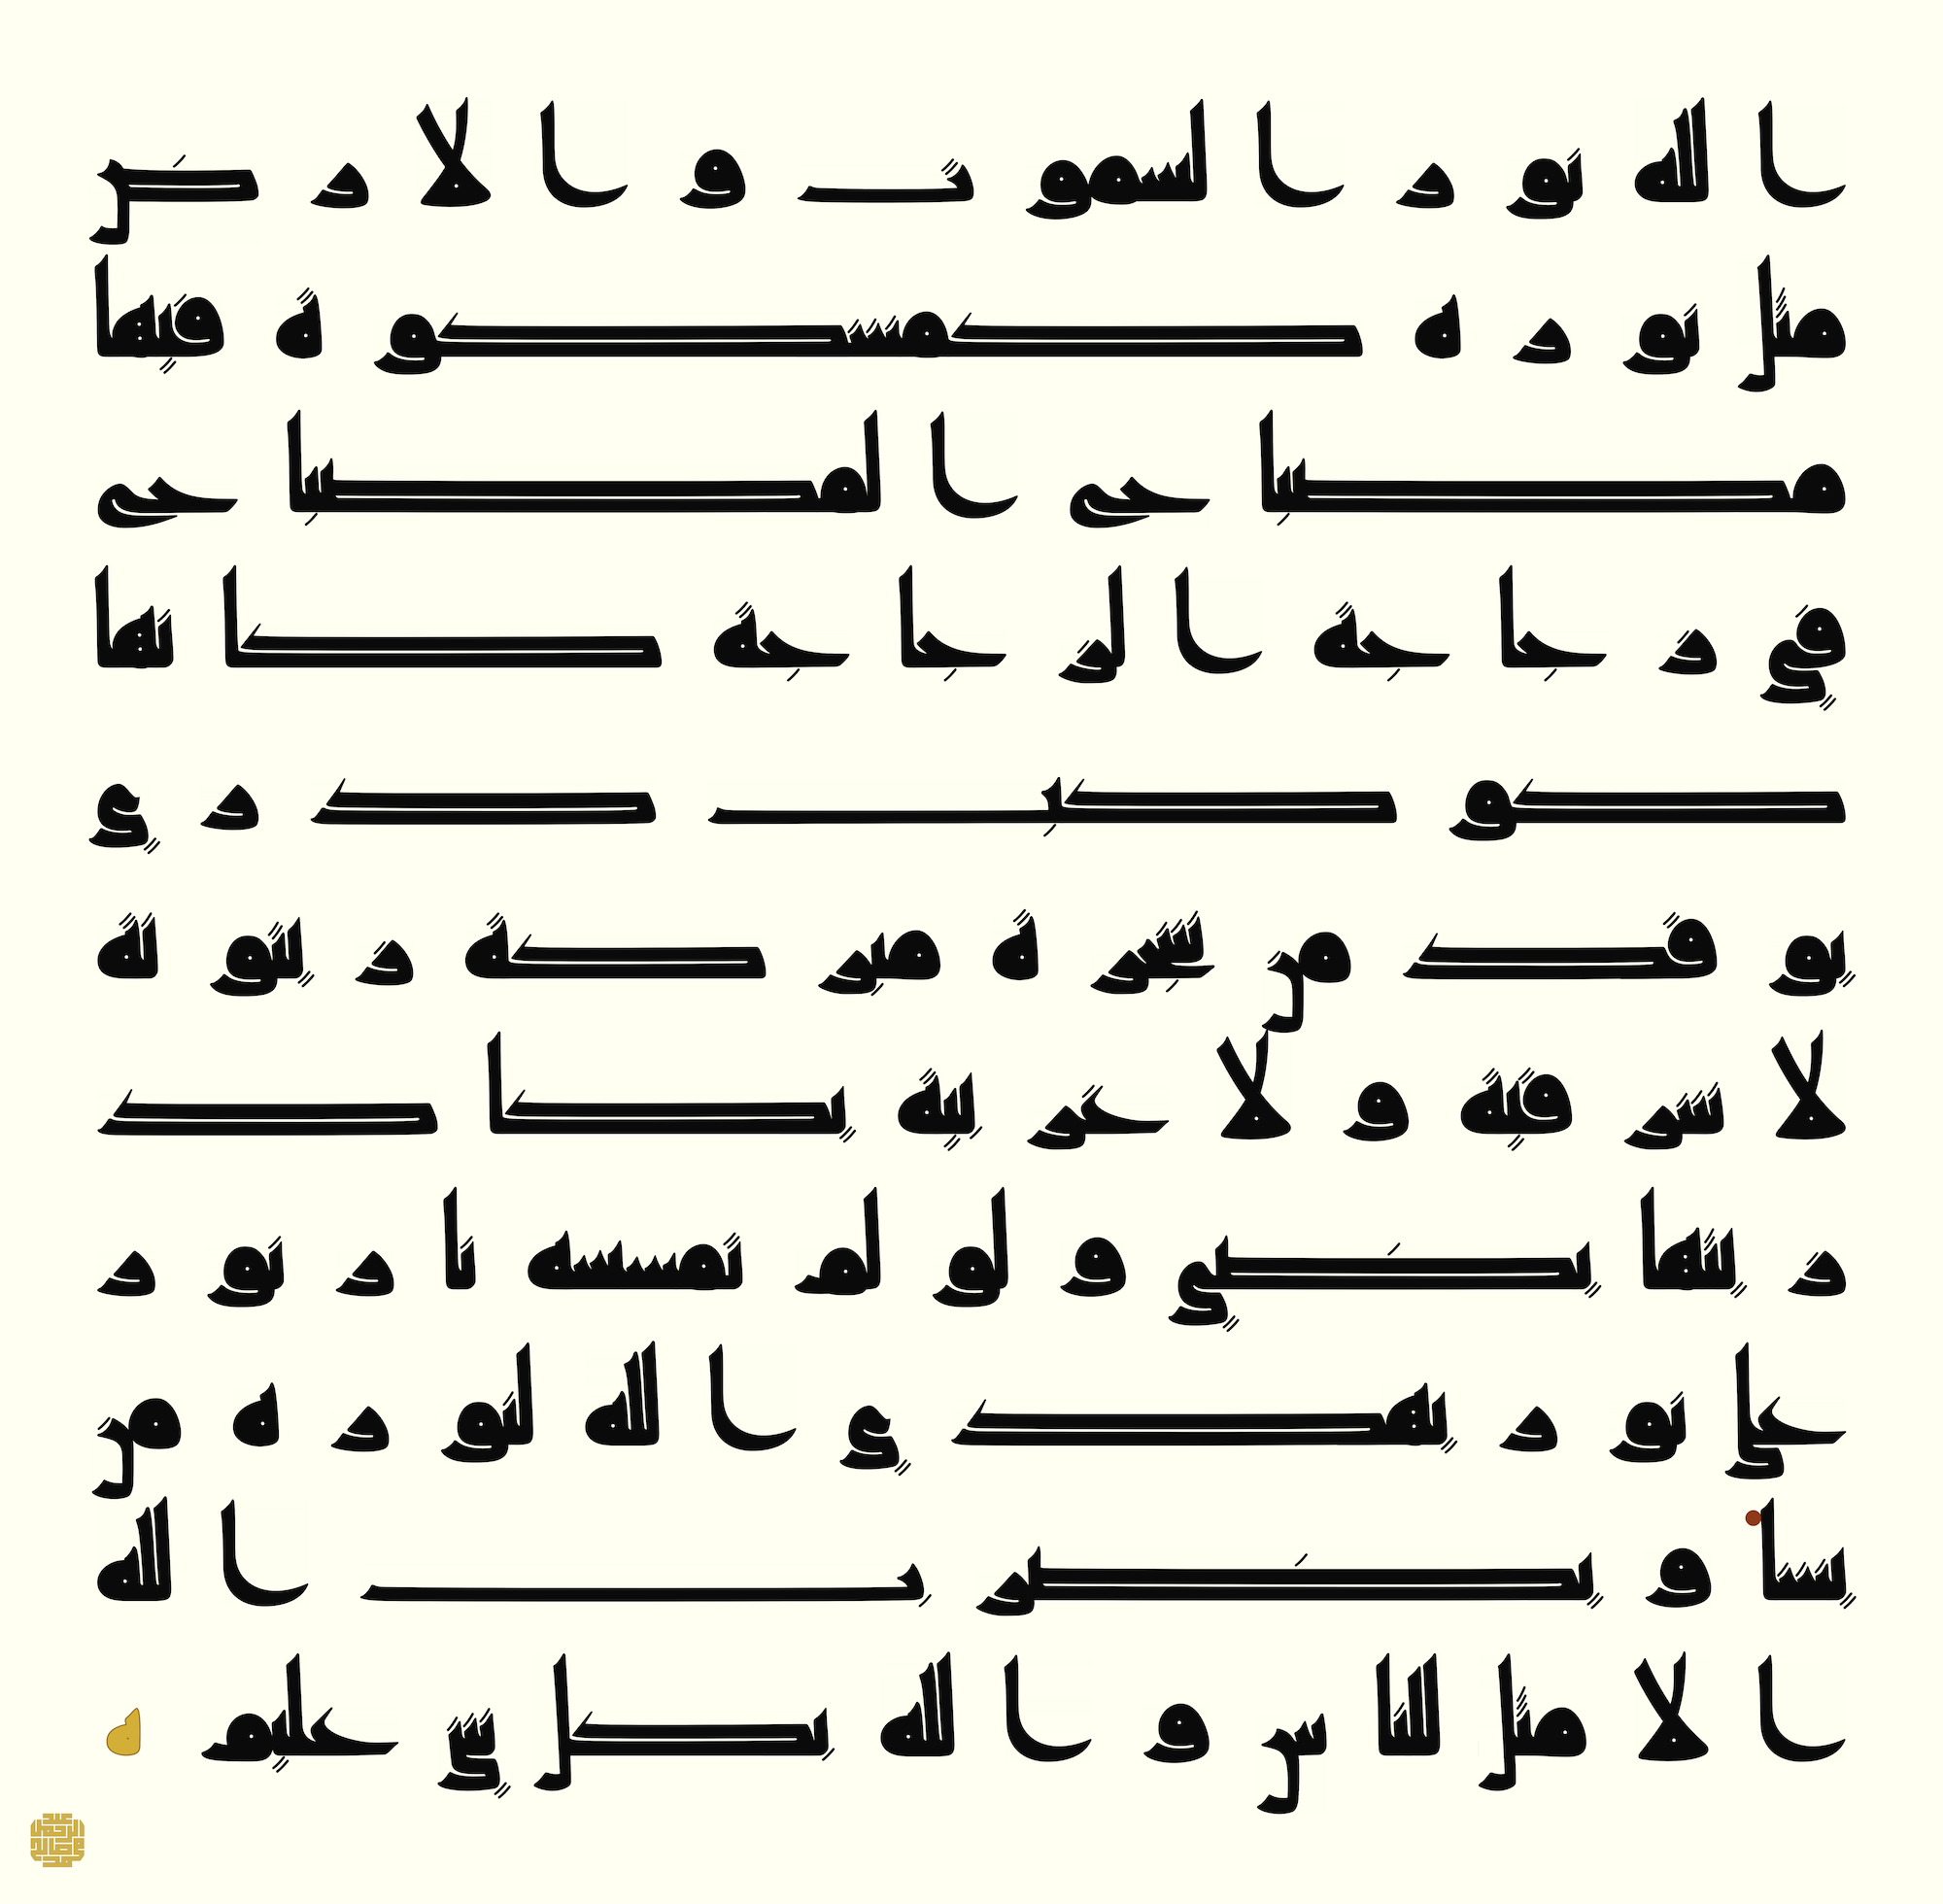 الله نور السموت والارض
مثل نوره كمشكوة فيها
مصباح المصباح
في زجاجة الزجاجة كانها
كوكب دري
يوقد من شجرة مبركة زيتونة
لا شرقية ولا غربية يكاد
زيتها يضي ولو لم تمسسه نار نور
على نور يهدي الله لنوره من
يشا ويضرب الله
الامثل للناس والله بكل شي عليم